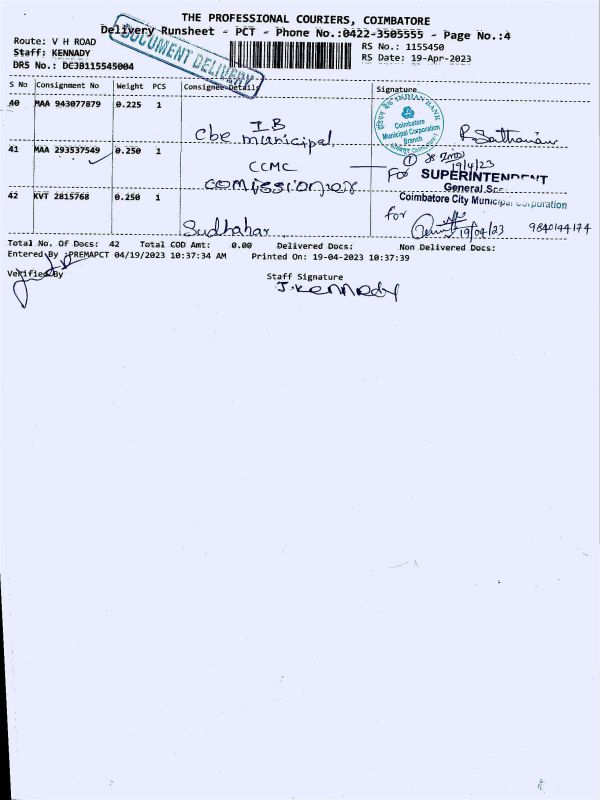 THE PROFESSIONAL COURIERS, COIMBATORE
Delivery Runsheet - PCT - Phone No.:0422-3505555 - Page No.:4
DOCUMENT DELIVERY
Route: V H ROAD
RS No.: 1155450
Staff: KENNADY
RS Date: 19-Apr-2023
DRS No.: DCJB115545004
S No Consignment No Weight PCS Consignee Details Signature
40 MAA 943077879 0.225 1
IB
Cbe municipal
INDIAN BANK
Coimbatore
Municipal Corporation
Branch
R Sathanam
41 MAA 293537549 0.250 1
CCMC
comissioner
19/4/23
For SUPERINTENDENT
General Sec
Coimbatore City Municipal Corporation
42 KVT 2815768 0.250 1
Sudhahar
for
19/04/23 9840144174
Total No. Of Docs: 42 Total COD Amt: 0.00 Delivered Docs: Non Delivered Docs:
Entered By :PREMAPCT 04/19/2023 10:37:34 AM Printed On: 19-04-2023 10:37:39
Verified By
Staff Signature
J.Kennady